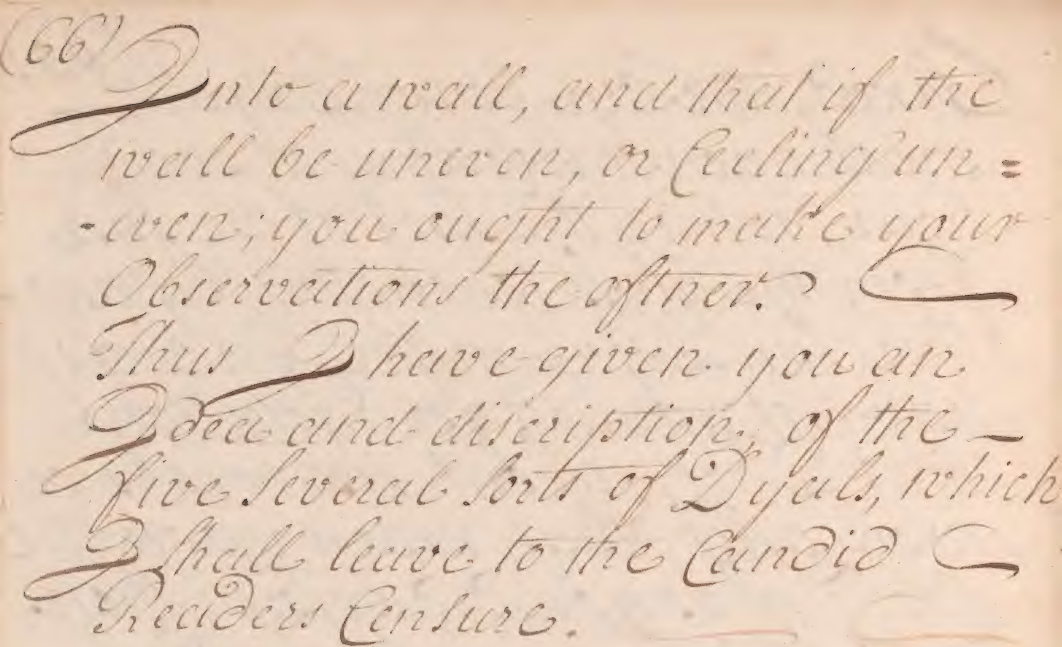 (66)
Into a wall, and that if the
wall be uneven, or Ceeling un=
-even; you ought to make your
Observations the oftner.
Thus I have given you an
Idea and discription, of the
five several sorts of Dyals, which
I shall leave to the Candid
Readers Censure.